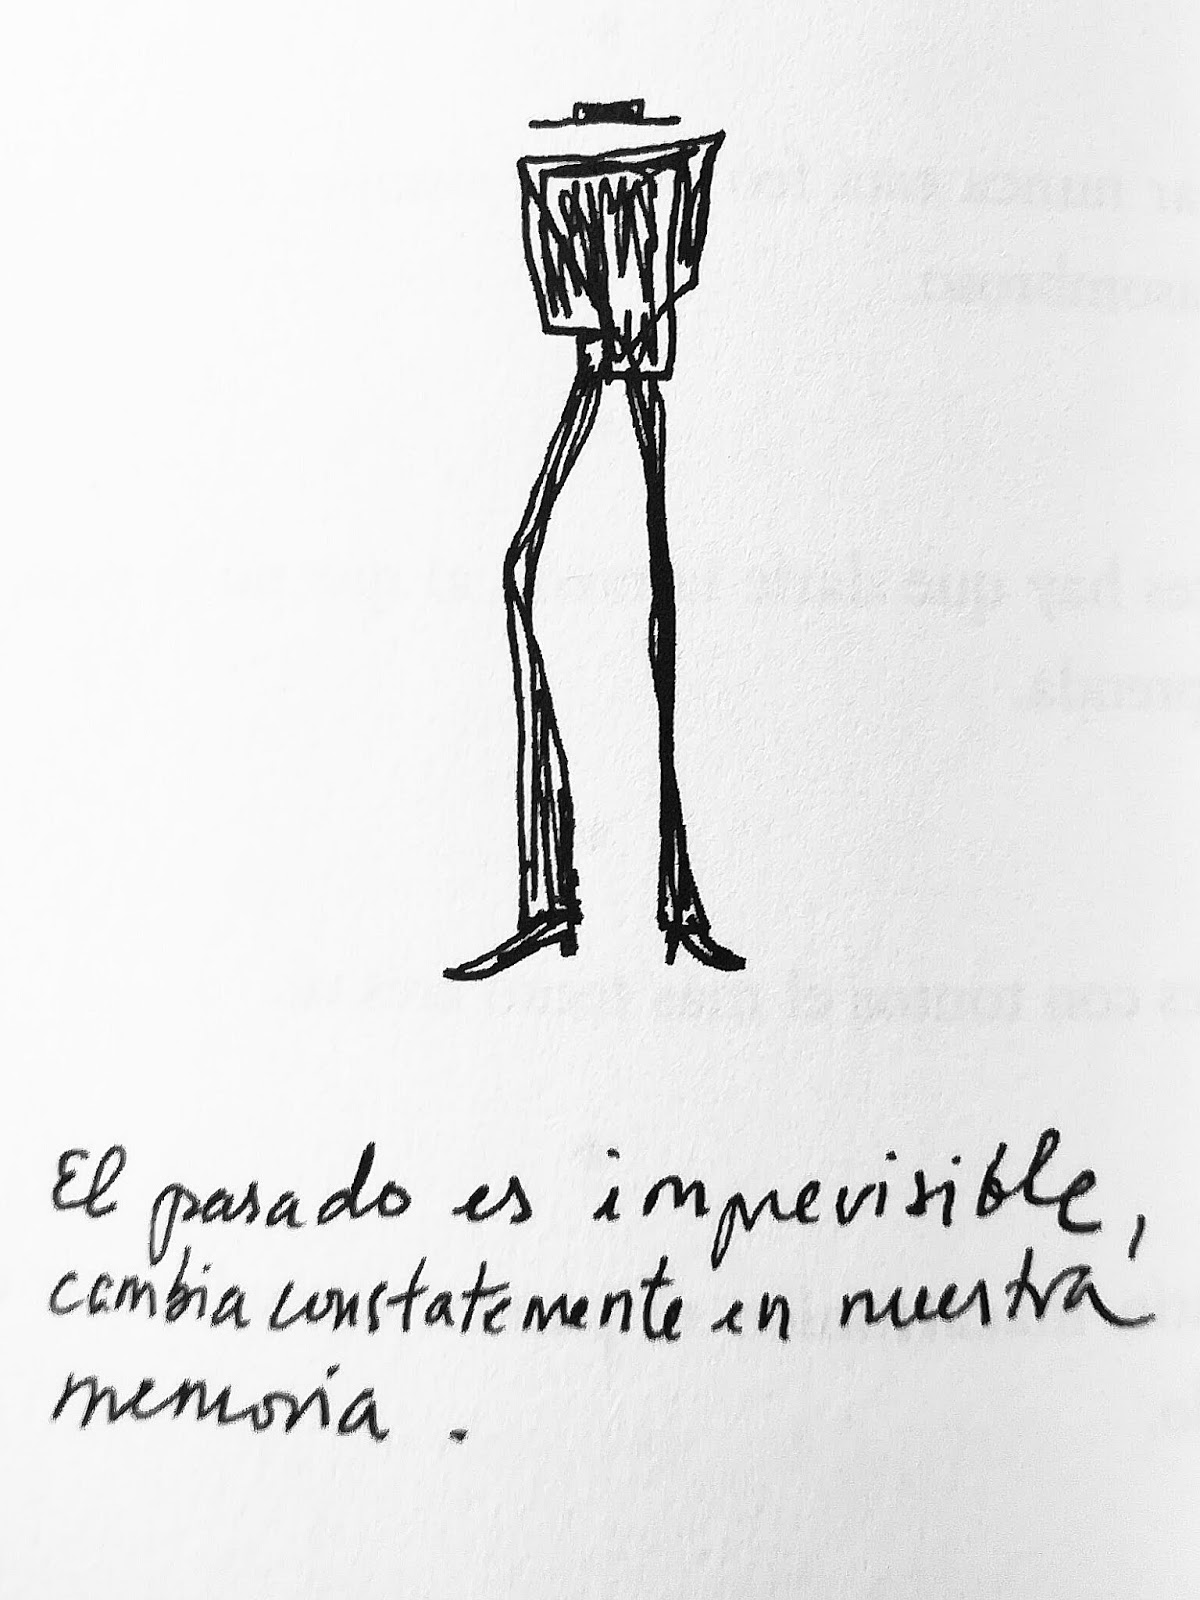 El pasado es imprevisible,
cambia constatemente en nuestra
memoria.